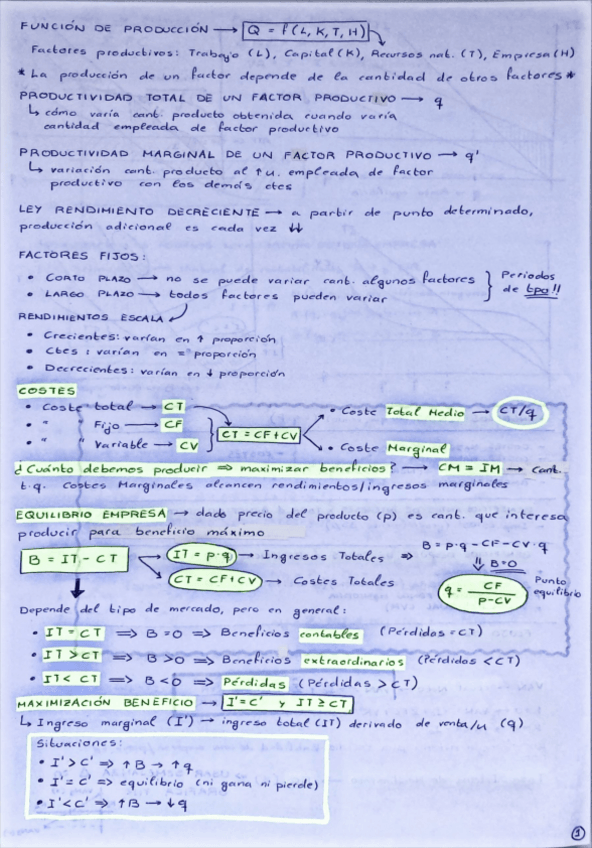 FUNCIÓN DE PRODUCCIÓN → Q = f(L, K, T, H)
Factores productivos: Trabajo (L), Capital (K), Recursos nat. (T), Empresa (H)
* La producción de un factor depende de la cantidad de otros factores *
PRODUCTIVIDAD TOTAL DE UN FACTOR PRODUCTIVO → q
↳ cómo varía cant. producto obtenida cuando varía
cantidad empleada de factor productivo
PRODUCTIVIDAD MARGINAL DE UN FACTOR PRODUCTIVO → q'
↳ variación cant. producto al ↑ u. empleada de factor
productivo con los demás ctes
LEY RENDIMIENTO DECRECIENTE → a partir de punto determinado,
producción adicional es cada vez ↓↓
FACTORES FIJOS:
• CORTO PLAZO → no se puede variar cant. algunos factores } Periodos
• LARGO PLAZO → todos factores pueden variar } de tpo!!
RENDIMIENTOS ESCALA
• Crecientes: varían en ↑ proporción
• Ctes: varían en = proporción
• Decrecientes: varían en ↓ proporción
COSTES
• Coste total → CT
• " " Fijo → CF
• " " Variable → CV
CT = CF + CV
• Coste Total Medio → CT/q
• Coste Marginal
¿Cuánto debemos producir ⇒ maximizar beneficios? → CM = IM → cant.
t.q. Costes Marginales alcancen rendimientos/ingresos marginales
EQUILIBRIO EMPRESA → dado precio del producto (p) es cant. que interesa
producir para beneficio máximo
B = IT - CT
IT = p·q → Ingresos Totales ⇒ B = p·q - CF - CV·q
CT = CF + CV → Costes Totales
⇓ B=0
q = CF / P-CV Punto equilibrio
Depende del tipo de mercado, pero en general:
• IT = CT ⇒ B = 0 ⇒ Beneficios contables (Pérdidas = CT)
• IT > CT ⇒ B > 0 ⇒ Beneficios extraordinarios (Pérdidas < CT)
• IT < CT ⇒ B < 0 ⇒ Pérdidas (Pérdidas > CT)
MAXIMIZACIÓN BENEFICIO → I' = C' y IT ≥ CT
↳ Ingreso marginal (I') → ingreso total (IT) derivado de venta/u (q)
Situaciones:
• I' > C' ⇒ ↑ B → ↑ q
• I' = C' ⇒ equilibrio (ni gana ni pierde)
• I' < C' ⇒ ↑ B → ↓ q
1